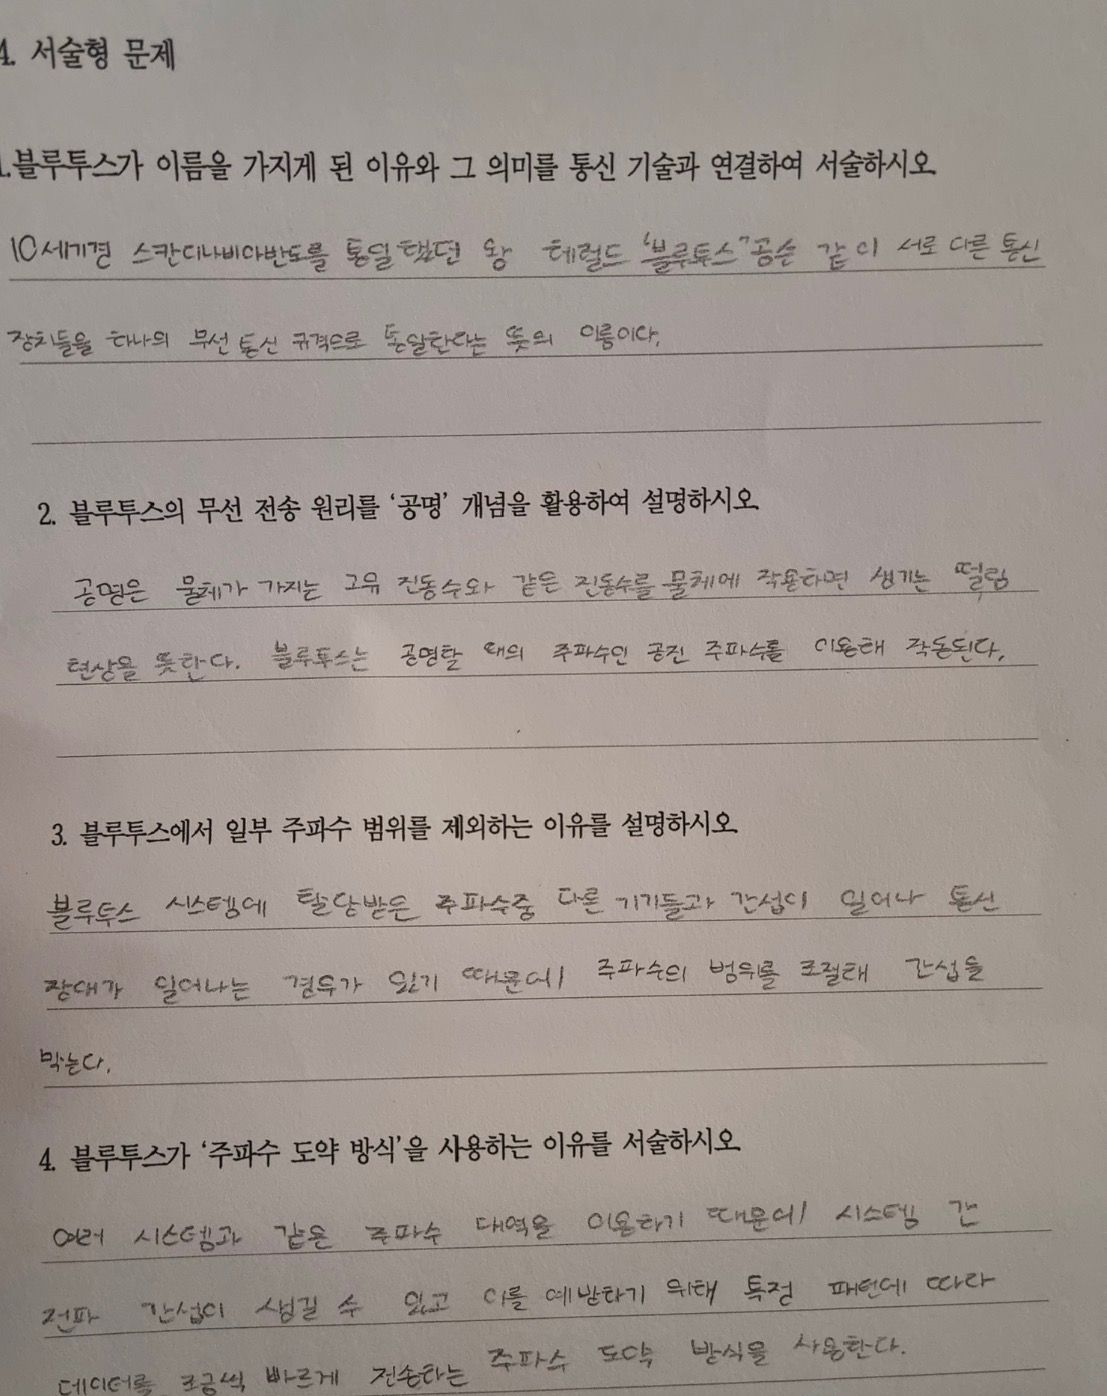 4. 서술형 문제
1.블루투스가 이름을 가지게 된 이유와 그 의미를 통신 기술과 연결하여 서술하시오
10세기경 스칸디나비아반도를 통일했던 왕 헤럴드 '블루투스' 공순 같이 서로 다른 통신
장치들을 하나의 무선 통신 규격으로 통일한다는 뜻의 이름이다.
2. 블루투스의 무선 전송 원리를 '공명' 개념을 활용하여 설명하시오
공명은 물체가 가지는 고유 진동수와 같은 진동수를 물체에 작용하면 생기는 떨림
현상을 뜻한다. 블루투스는 공명할 때의 주파수인 공진 주파수를 이용해 작동된다.
3. 블루투스에서 일부 주파수 범위를 제외하는 이유를 설명하시오
블루투스 시스템에 할당받은 주파수중 다른 기기들과 간섭이 일어나 통신
장애가 일어나는 경우가 있기 때문에 주파수의 범위를 조절해 간섭을
막는다.
4. 블루투스가 '주파수 도약 방식'을 사용하는 이유를 서술하시오
여러 시스템과 같은 주파수 대역을 이용하기 때문에 시스템 간
전파 간섭이 생길 수 있고 이를 예방하기 위해 특정 패턴에 따라
데이터를 조금씩 빠르게 전송하는 주파수 도약 방식을 사용한다.